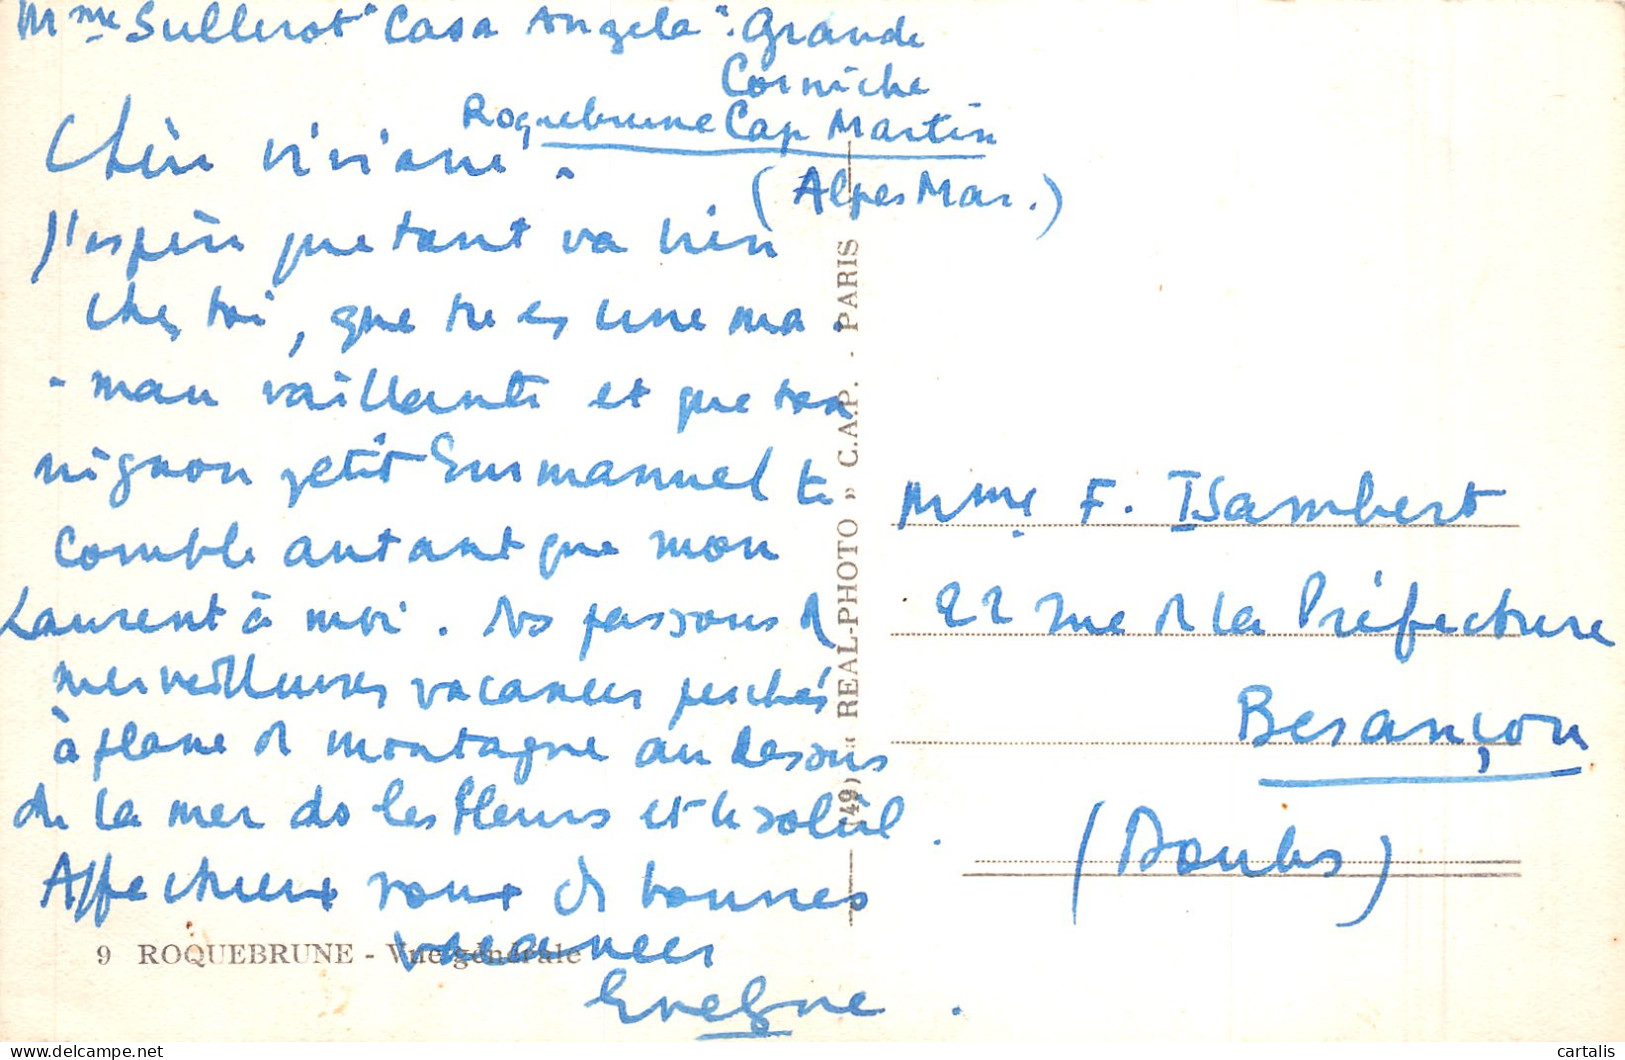 Mme Sullerot "Casa Angela". Grande
Corniche
Roquebrune Cap Martin
(Alpes Mar.)
Chère Viviane.
J'espère que tout va bien
chez toi, que tu es une ma
-man vaillante et que ton
mignon petit Emmanuel te
comble autant que mon
Laurent à moi. Ns passons de
merveilleuses vacances perchés
à flanc de montagne au dessus
de la mer ds les fleurs et le soleil.
Affectueux voeux de bonnes
vacances
Evelyne.
9 ROQUEBRUNE - Vue générale
(49) « REAL-PHOTO » C.A.P. - PARIS
Mme F. Isambert
22 rue de la Préfecture
Besançon
(Doubs)
cartalis